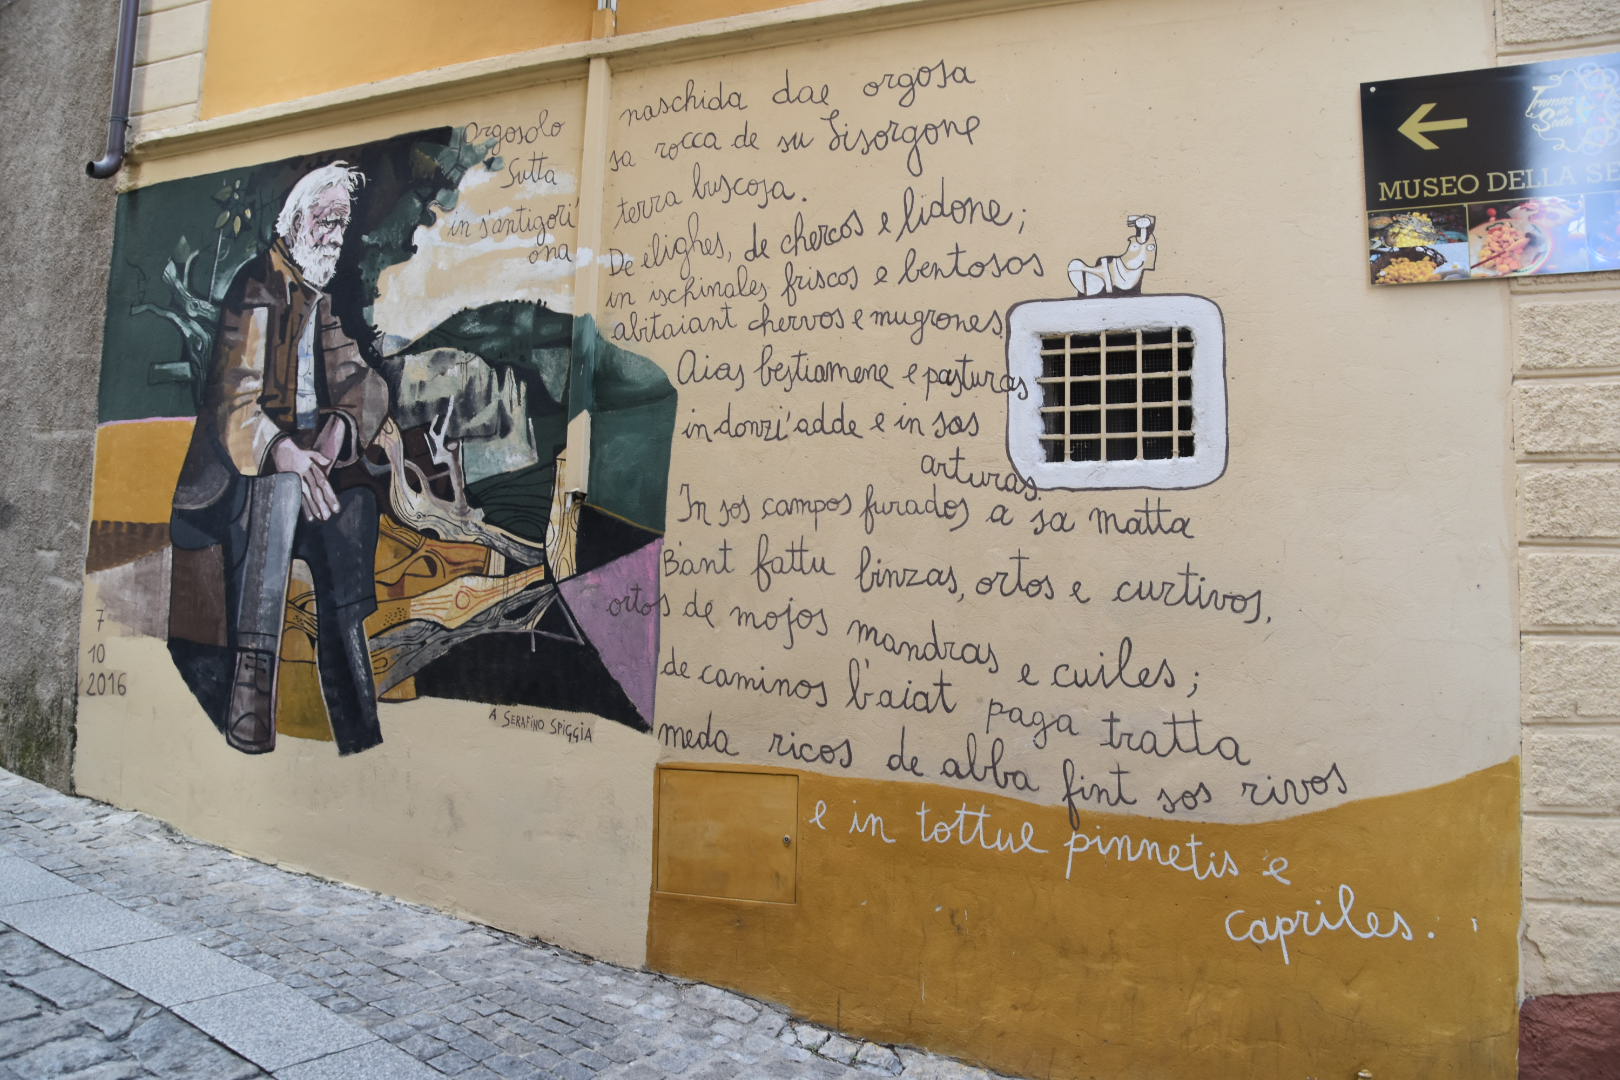 Orgosolo
Sutta
in s'antigori'
ona
naschida dae orgosa
sa rocca de su Lisorgone
terra buscosa.
De elighes, de chercos e lidone;
in ischinales friscos e bentosos
abitaiant chervos e mugrones.
Aias bestiamene e pasturas
in donzi'adde e in sas
arturas.
In sos campos furados a sa matta
B'ant fattu binzas, ortos e curtivos,
ortos de mojos mandras e cuiles;
de caminos b'aiat paga tratta
meda ricos de abba fint sos rivos
e in tottue pinnetis e
capriles.
7
10
2016
A SERAFINO SPIGGIA
MUSEO DELLA SE